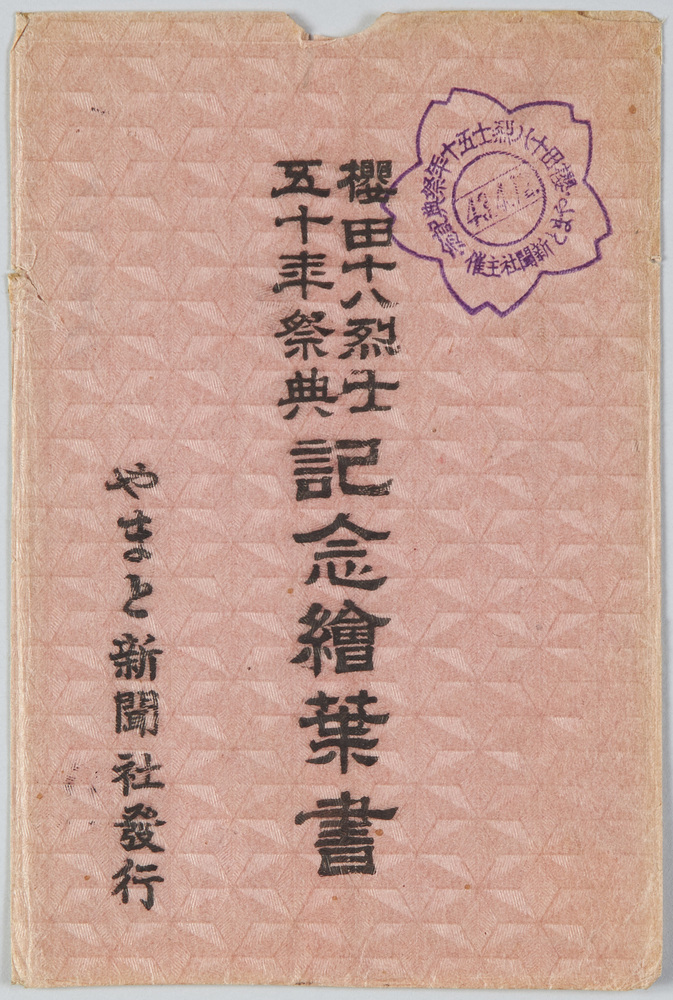 櫻田十八烈士
五十年祭典
記念繪葉書
やまと新聞社發行
櫻田十八烈士五十年祭典紀念
やまと新聞社主催